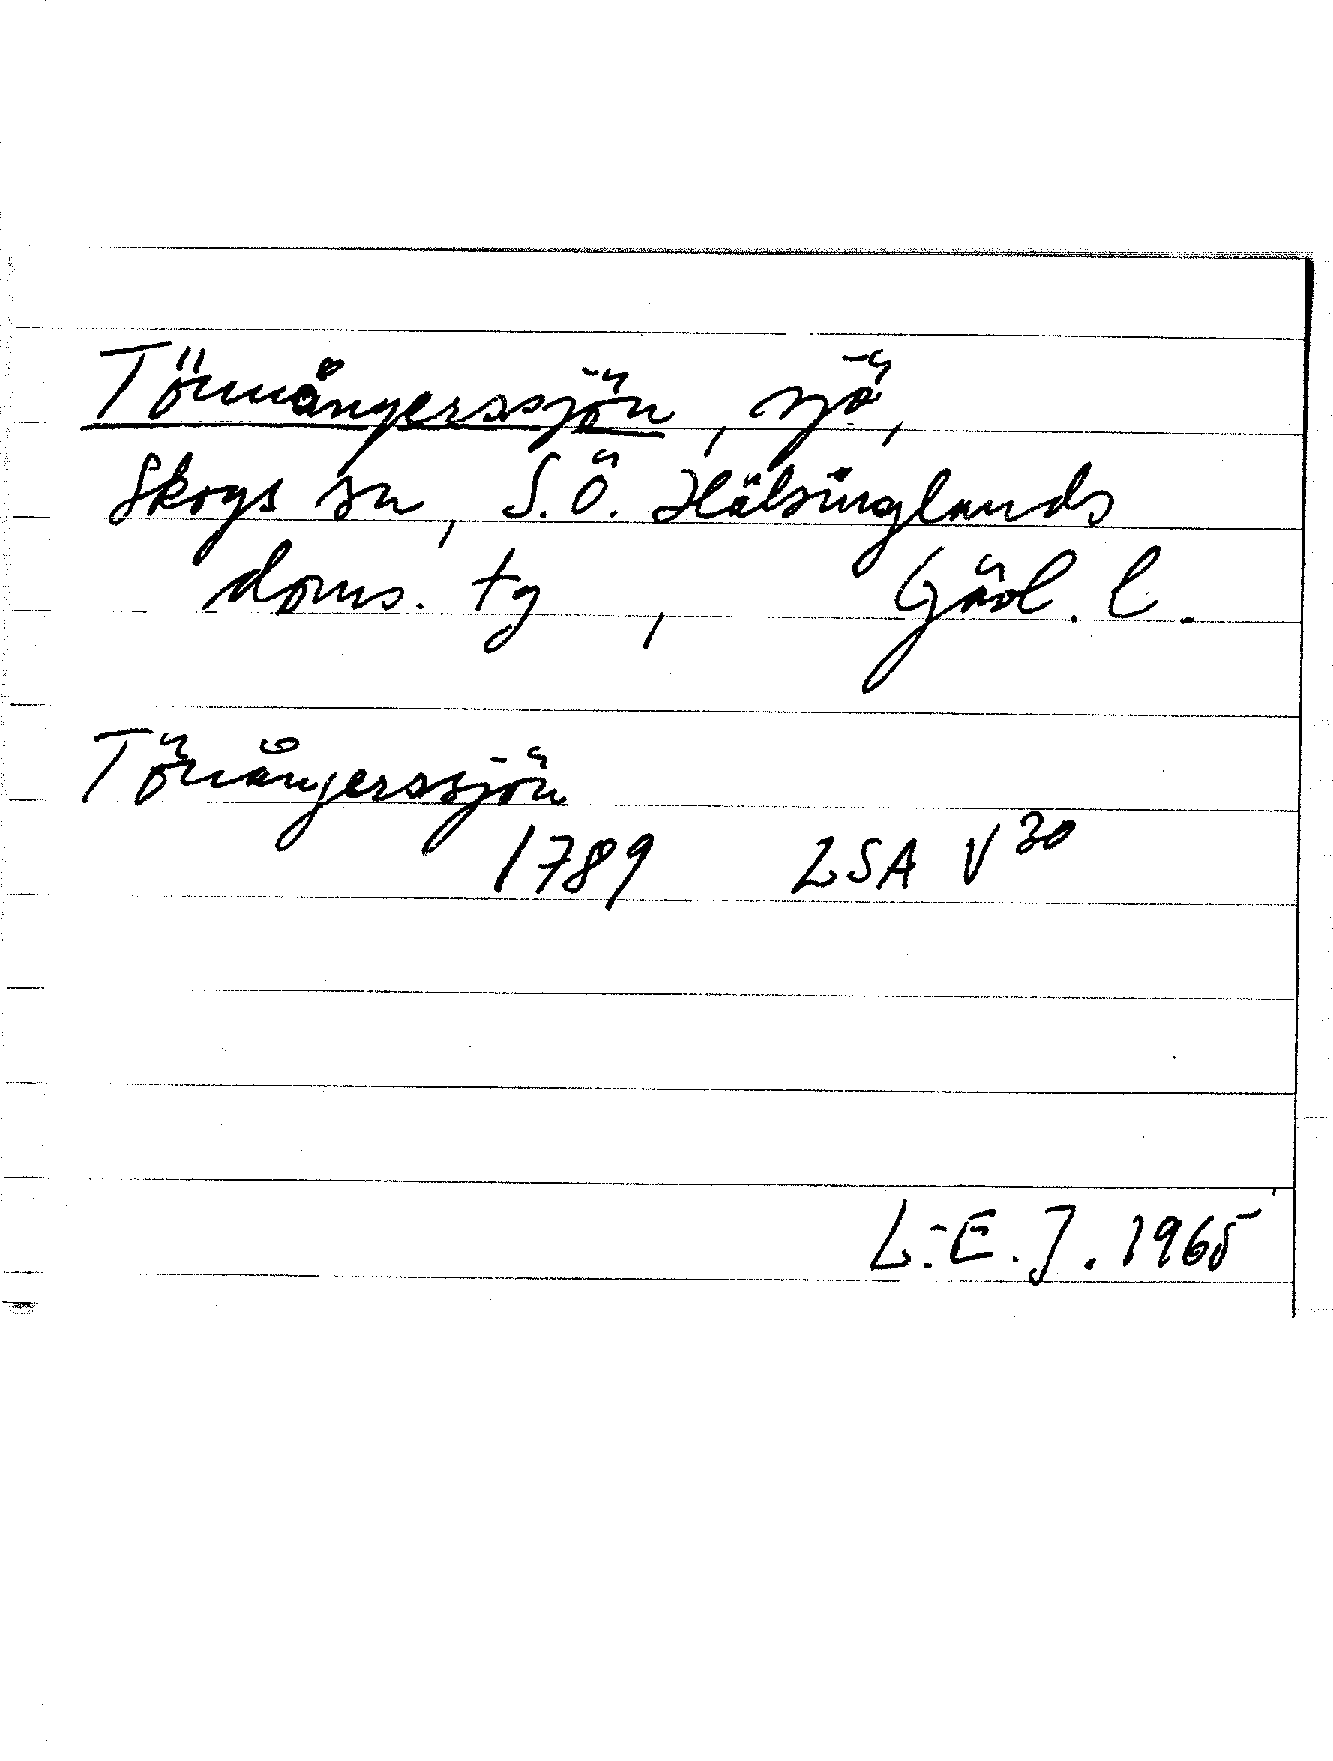 Tönnångerssjön, sjö,
Skogs sn, S.Ö. Hälsinglands
doms. tg, Gävl. l.
Tönångerssjön
1789 LSA V 30
L.-E. J. 1965